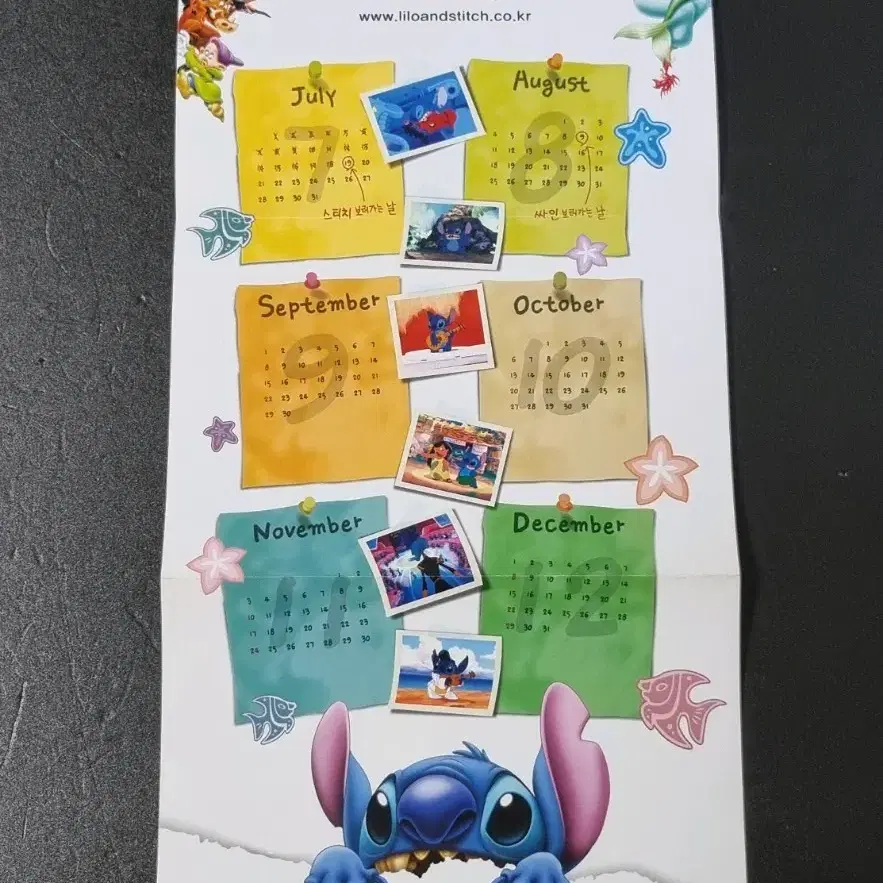 www.liloandstitch.co.kr
July
7
19 20
21 22 23 24 25 26 27
28 29 30 31
스티치 보러가는 날
August
8
1 2 3
4 5 6 7 8 9 10
11 12 13 14 15 16 17
18 19 20 21 22 23 24
25 26 27 28 29 30 31
싸인 보러가는 날
September
9
1 2 3 4 5 6 7
8 9 10 11 12 13 14
15 16 17 18 19 20 21
22 23 24 25 26 27 28
29 30
October
10
1 2 3 4 5
6 7 8 9 10 11 12
13 14 15 16 17 18 19
20 21 22 23 24 25 26
27 28 29 30 31
November
11
1 2
3 4 5 6 7 8 9
10 11 12 13 14 15 16
17 18 19 20 21 22 23
24 25 26 27 28 29 30
December
12
1 2 3 4 5 6 7
8 9 10 11 12 13 14
15 16 17 18 19 20 21
22 23 24 25 26 27 28
29 30 31